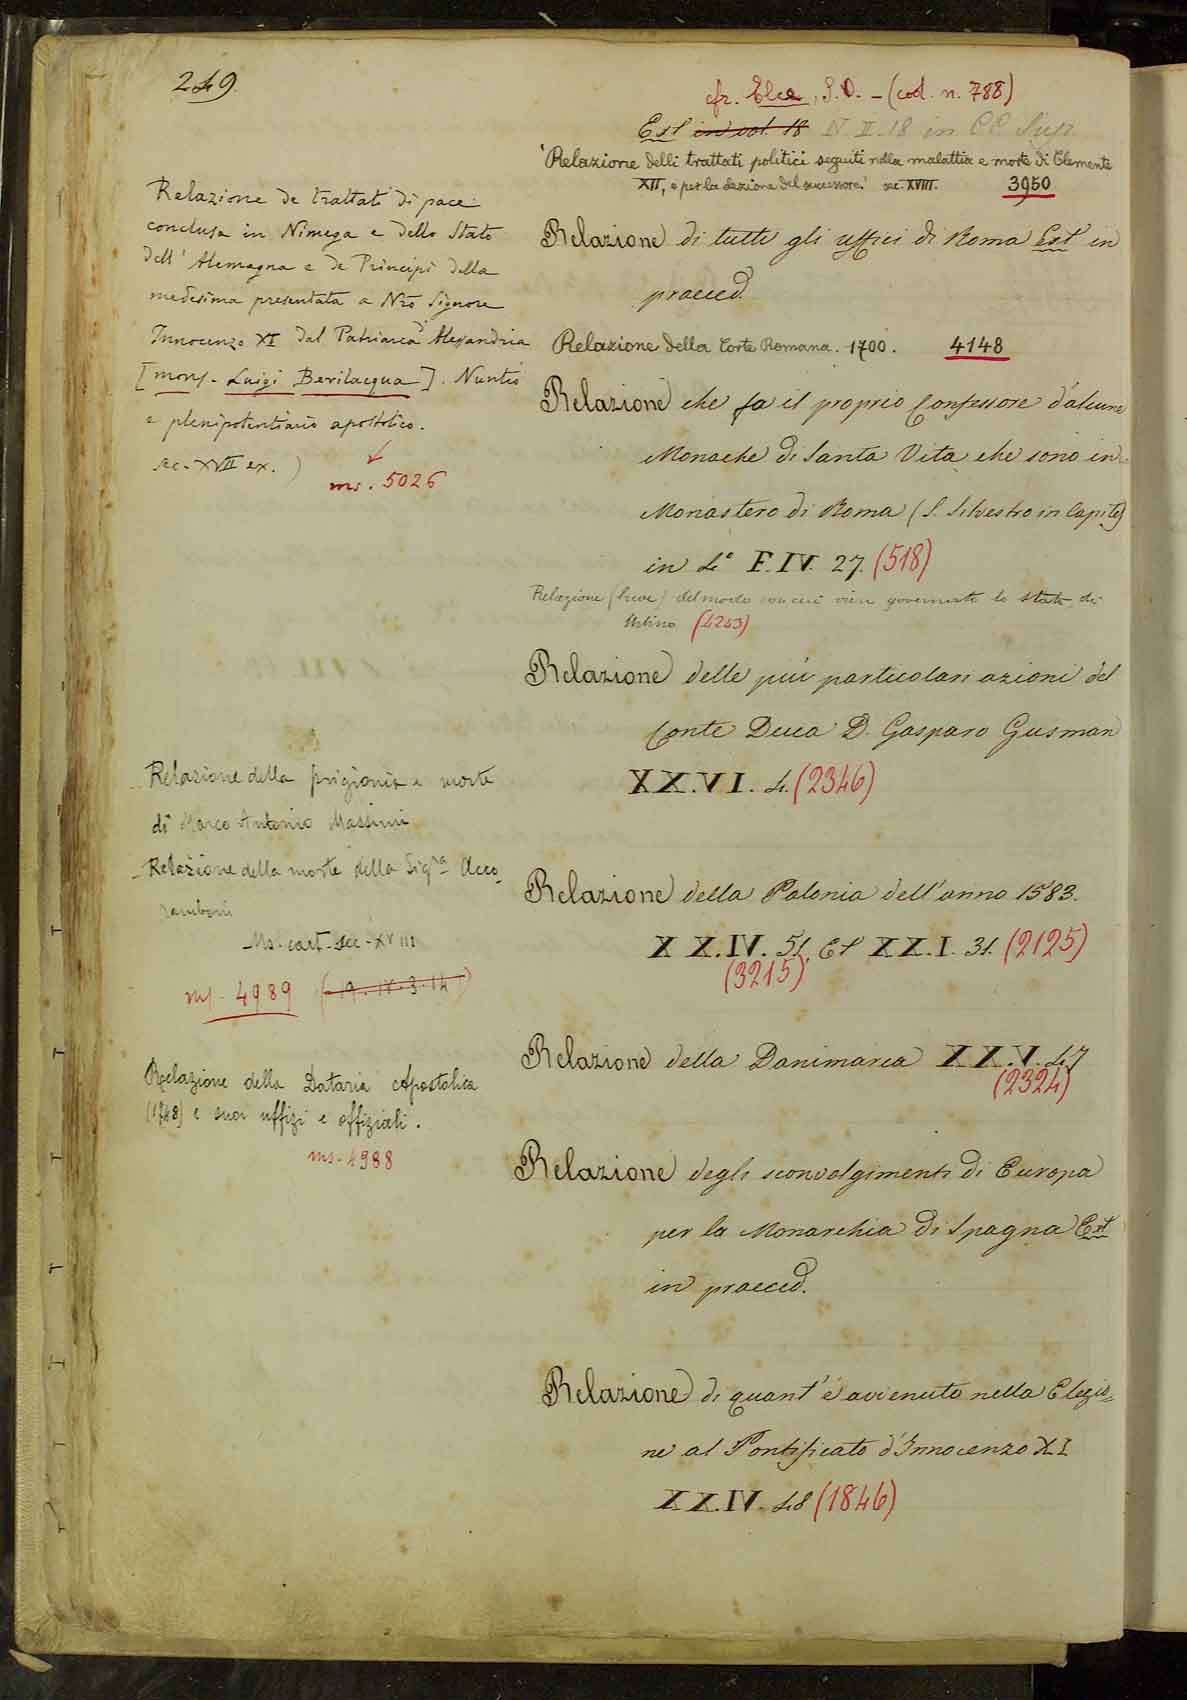 249.
cfr. Elce, S.O. - (cod. n. 788)
Est in vol. 18 N. II. 18 in
'Relazione delli trattati politici seguiti nella malattia e morte di Clemente
XII, e per la elezione del successore.' sec. XVIII. 3950
Relazione di tutti gli uffici di Roma Est in
praeced.
Relazione della Corte Romana. 1700. 4148
Relazione che fa il proprio Confessore d'alcune
Monache di Santa Vita che sono in
Monastero di Roma (S. Silvestro in Capite)
in 4° F. IV. 27. (518)
Relazione (breve) del modo con cui vien governato lo stato di
Urbino (4253)
Relazione delle più particolari azioni del
Conte Duca D. Gasparo Gusman
XX.VI. 4. (2346)
Relazione della Polonia dell'anno 1583.
XX.IV. 51. Et XX.I. 31. (2125)
(3215)
Relazione della Danimarca XX.V. 47
(2324)
Relazione degli sconvolgimenti di Europa
per la Monarchia di Spagna Est
in praeced.
Relazione di quant'è avvenuto nella Elezio=
ne al Pontificato d'Innocenzo XI
XX.IV. 48 (1846)
Relazione de trattati di pace
conclusa in Nimega e dello Stato
dell'Alemagna e de Principi della
medesima presentata a Nro Signore
Innocenzo XI dal Patriarca d'Alessandria
[mons. Luigi Bevilacqua]. Nuntio
e plenipotentiario apostolico.
sec. XVII ex.)
ms. 5026
Relazione della prigionia e morte
di Marco Antonio Massimi
Relazione della morte della Sigra Acco-
ramboni
Ms. cart. sec. XVIII
ms. 4989 (19. IV. 3. 14)
Relazione della Dataria Apostolica
(1748) e suoi uffizi e offiziali.
ms. 4988